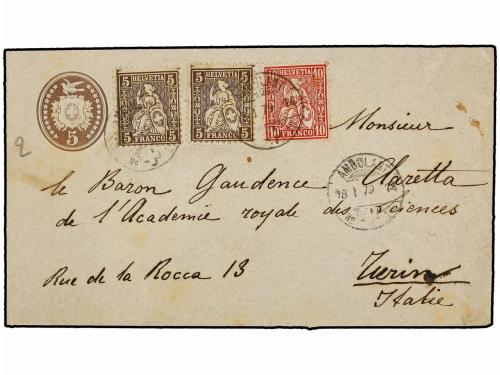 5
5 HELVETIA 5
5 FRANCO 5
5 HELVETIA 5
5 FRANCO 5
10 HELVETIA 10
10 FRANCO 10
2
Monsieur
le Baron Gaudence Claretta
de l'Académie royale des Sciences
Rue de la Rocca 13
Turin
Italie
AMBULANT